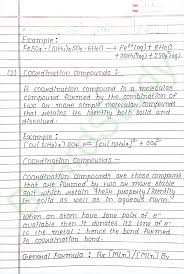 Example :
FeSO4 · (NH4)2SO4 · 6H2O → Fe2+(aq) + 6H2O
+ 2NH4+(aq) + 2SO4 2-(aq)
(2) Coordination Compounds :
A coordination compound is a molecular
compound formed by the combination of
two or more simple molecular compounds
that retains its identity both solid and
dissolved.
Example :
[Cu(NH3)4]SO4 ⇌ [Cu(NH3)4]2+ + SO4 2-
Coordination Compounds —
Coordination compounds are those compound
that are formed by two or more stable
salt which retain their property/identity
in solid as well as in aqueous form.
When an atom have lone pair of e-
available then it donates its lone of e-
to the metal ; hence the bond formed
is coordination bond.
General Formula :